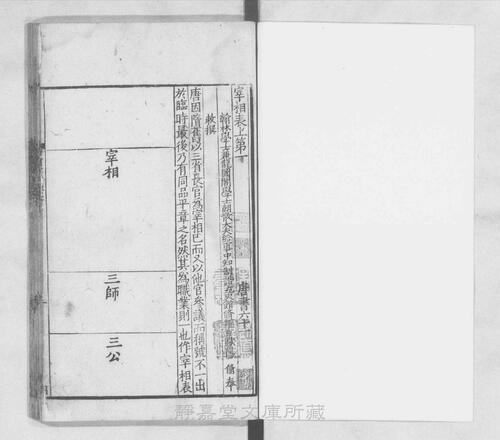 宰相表上第一
唐書六十一
翰林學士兼龍圖閣學士朝散大夫給事中知制誥充史館脩撰臣歐陽脩奉
敕撰
唐因隋舊以三省長官為宰相已而又以他官參議而稱號不一出
於臨時最後乃有同品平章之名然其為職業則一也作宰相表
宰相
三師
三公
靜嘉堂文庫所藏